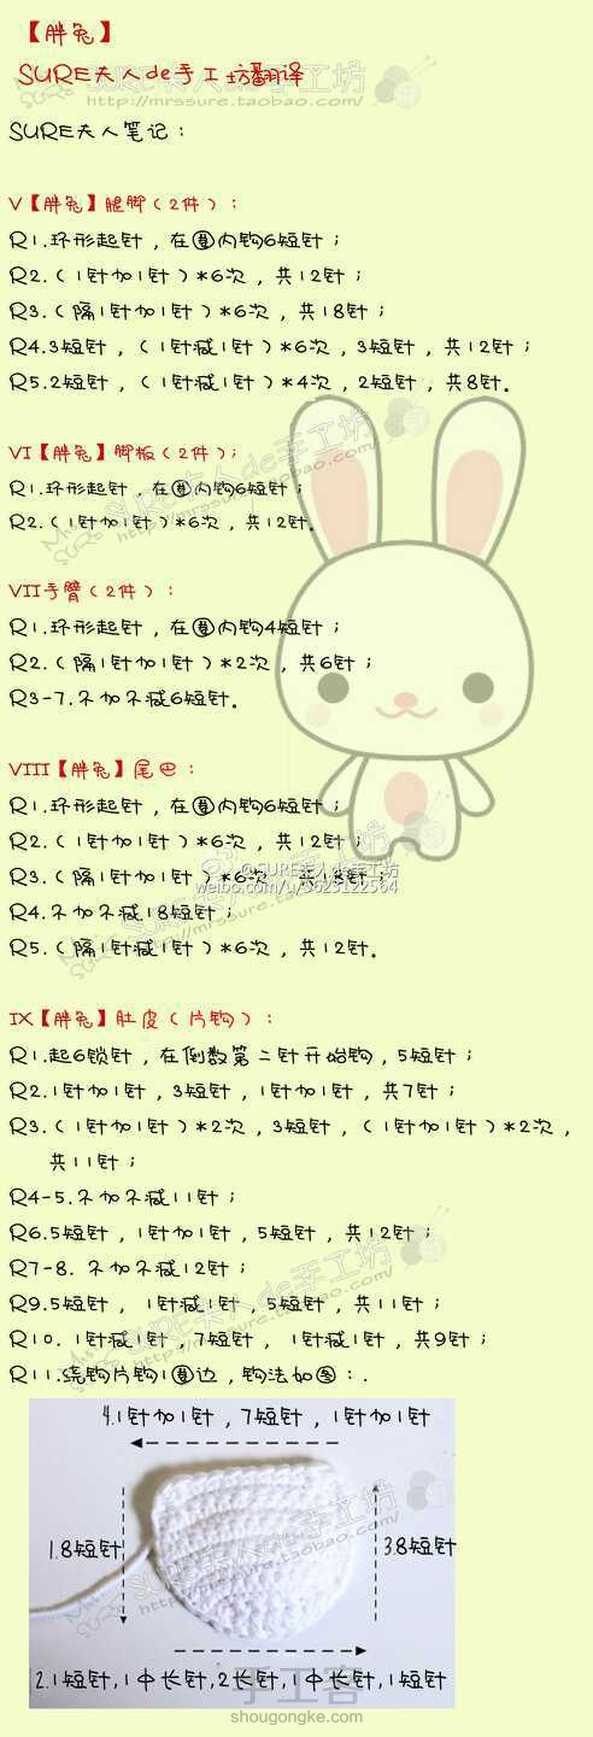 【胖兔】
SURE夫人de手工坊翻译
http://mrssure.taobao.com/
SURE夫人笔记：
V【胖兔】腿脚（2件）：
R1.环形起针，在圈内钩6短针；
R2.（1针加1针）*6次，共12针；
R3.（隔1针加1针）*6次，共18针；
R4.3短针，（1针减1针）*6次，3短针，共12针；
R5.2短针，（1针减1针）*4次，2短针，共8针。
VI【胖兔】脚板（2件）；
R1.环形起针，在圈内钩6短针；
R2.（1针加1针）*6次，共12针。
VII手臂（2件）：
R1.环形起针，在圈内钩4短针；
R2.（隔1针加1针）*2次，共6针；
R3-7.不加不减6短针。
VIII【胖兔】尾巴：
R1.环形起针，在圈内钩6短针；
R2.（1针加1针）*6次，共12针；
@SURE夫人de手工坊
R3.（隔1针加1针）*6次，共18针；
weibo.com/u/3623122564
R4.不加不减18短针；
R5.（隔1针减1针）*6次，共12针。
IX【胖兔】肚皮（片钩）：
R1.起6锁针，在倒数第二针开始钩，5短针；
R2.1针加1针，3短针，1针加1针，共7针；
R3.（1针加1针）*2次，3短针，（1针加1针）*2次，
共11针；
R4-5.不加不减11针；
R6.5短针，1针加1针，5短针，共12针；
R7-8. 不加不减12针；
R9.5短针， 1针减1针，5短针，共11针；
R10. 1针减1针，7短针， 1针减1针，共9针；
R11.绕钩片钩1圈边，钩法如图：.
4.1针加1针，7短针，1针加1针
1.8短针
3.8短针
2.1短针,1中长针,2长针,1中长针,1短针
手工客
shougongke.com